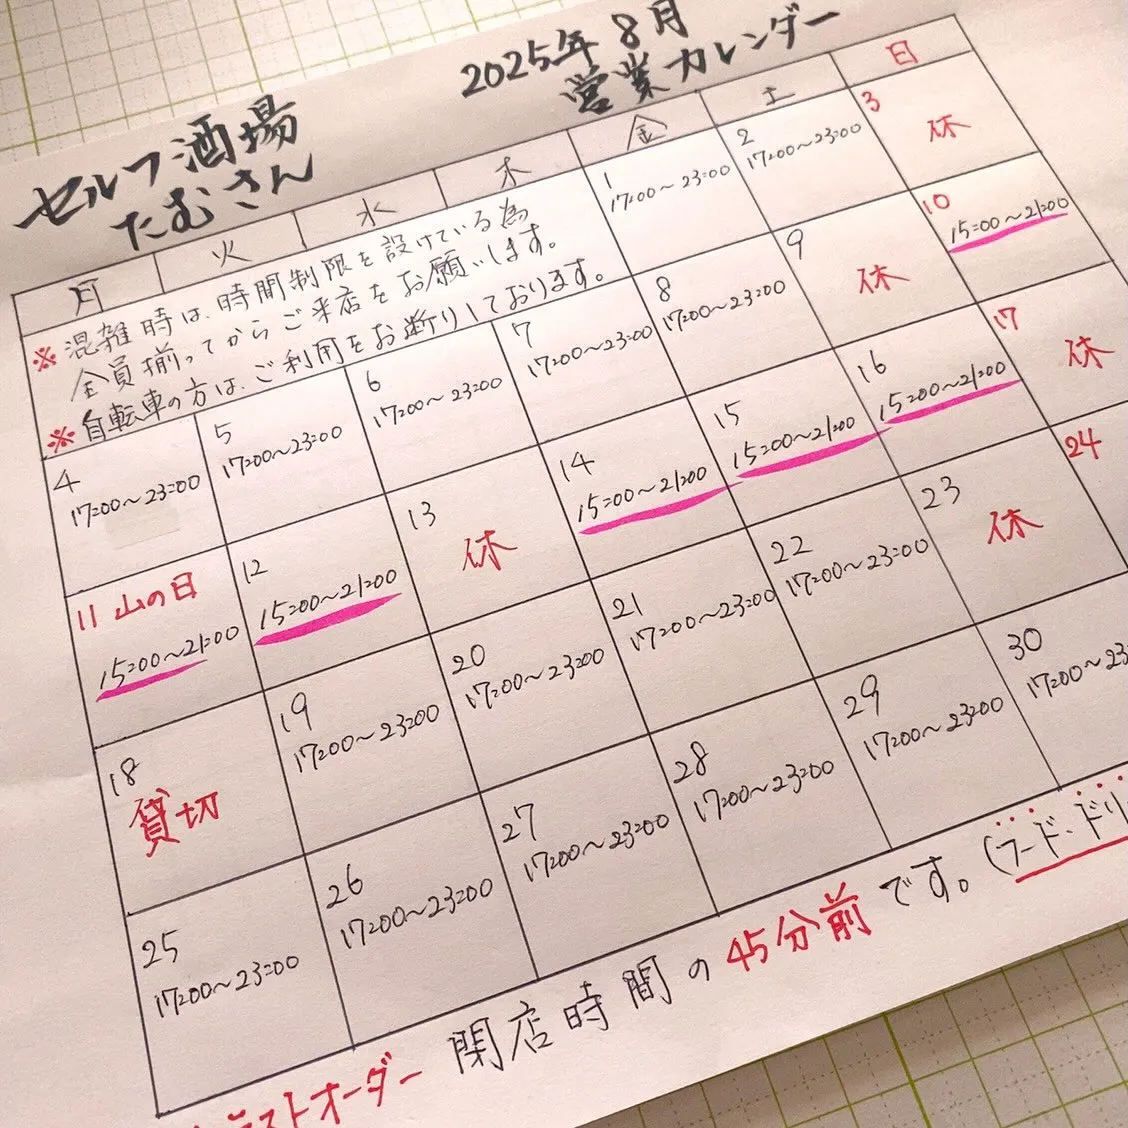 セルフ酒場
たむさん
2025年 8月
営業カレンダー
月 火 水 木 金 土 日
※混雑時は、時間制限を設けている為
全員揃ってからご来店をお願いします。
※自転車の方は、ご利用をお断りしております。
1
17:00～23:00
2
17:00～23:00
3
休
4
17:00～23:00
5
17:00～23:00
6
17:00～23:00
7
17:00～23:00
8
17:00～23:00
9
休
10
15:00～21:00
11 山の日
15:00～21:00
12
15:00～21:00
13
休
14
15:00～21:00
15
15:00～21:00
16
15:00～21:00
17
休
18
貸切
19
17:00～23:00
20
17:00～23:00
21
17:00～23:00
22
17:00～23:00
23
休
24
25
17:00～23:00
26
17:00～23:00
27
17:00～23:00
28
17:00～23:00
29
17:00～23:00
30
17:00～23
ラストオーダー 閉店時間の45分前です。(フード、ドリ